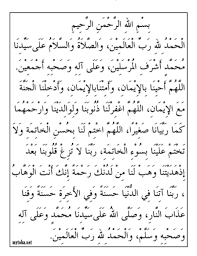 بِسْمِ اللهِ الرَّحْمَنِ الرَّحِيمِ
الْحَمْدُ لِلَّهِ رَبِّ الْعَالَمِيْنَ، وَالصَّلَاةُ وَالسَّلَامُ عَلَى سَيِّدِنَا
مُحَمَّدٍ أَشْرَفِ الْمُرْسَلِيْنَ، وَعَلَى آلِهِ وَصَحْبِهِ أَجْمَعِيْنَ.
اللَّهُمَّ أَحْيِنَا بِالْإِيمَانِ، وَأَمِتْنَابِالْإِيمَانِ، وَأَدْخِلْنَا الْجَنَّةَ
مَعَ الْإِيمَانِ، اللَّهُمَّ اغْفِرْلَنَا ذُنُوْبَنَا وَلِوَالِدَيْنَا وَارْحَمْهُمَا
كَمَا رَبَّيَانَا صَغِيْرًا، اللَّهُمَّ اخْتِمْ لَنَا بِحُسْنِ الْخَاتِمَةِ وَلَا
تَخْتِمْ عَلَيْنَا بِسُوْءِ الْخَاتِمَةِ، رَبَّنَا لَا تُزِغْ قُلُوْبَنَا بَعْدَ
إِذْهَدَيْتَنَا وَهَبْ لَنَا مِنْ لَدُنْكَ رَحْمَةً إِنَّكَ أَنْتَ الْوَهَّابُ
، رَبَّنَا آتِنَا فِي الدُّنْيَا حَسَنَةً وَفِي الْآخِرَةِ حَسَنَةً وَقِنَا
عَذَابَ النَّارِ، وَصَلَّى اللهُ عَلَى سَيِّدِنَا مُحَمَّدٍ وَعَلَى آلِهِ
وَصَحْبِهِ وَسَلَّمَ، وَالْحَمْدُ لِلَّهِ رَبِّ الْعَالَمِيْنَ.